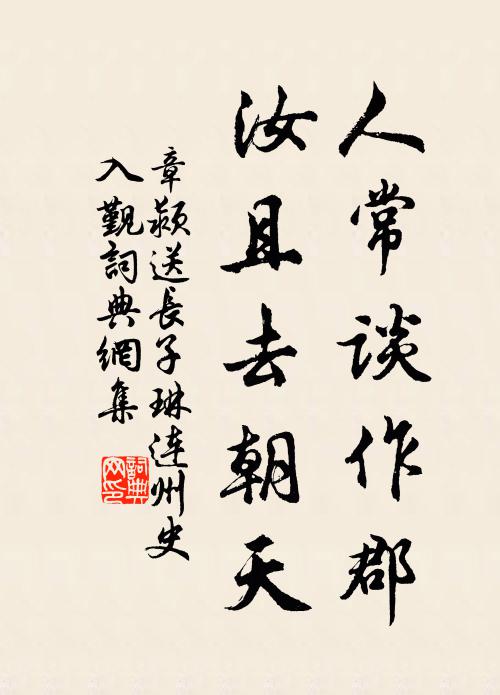 人常談作郡
汝且去朝天
章颎送長子琳連州史
入覲詞典網集
詞典网印